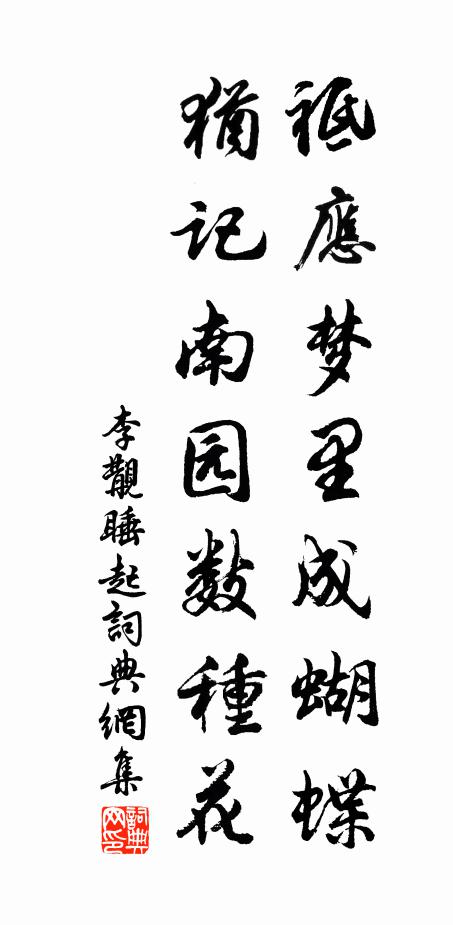 祗應梦里成蝴蝶
猶记南园数種花
李覯睡起詞典網集
詞典
网印